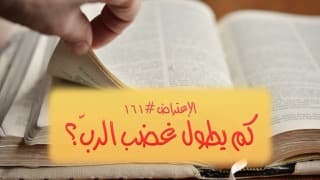 الإعتراض #١٦١
كم يطول غضب الربّ؟